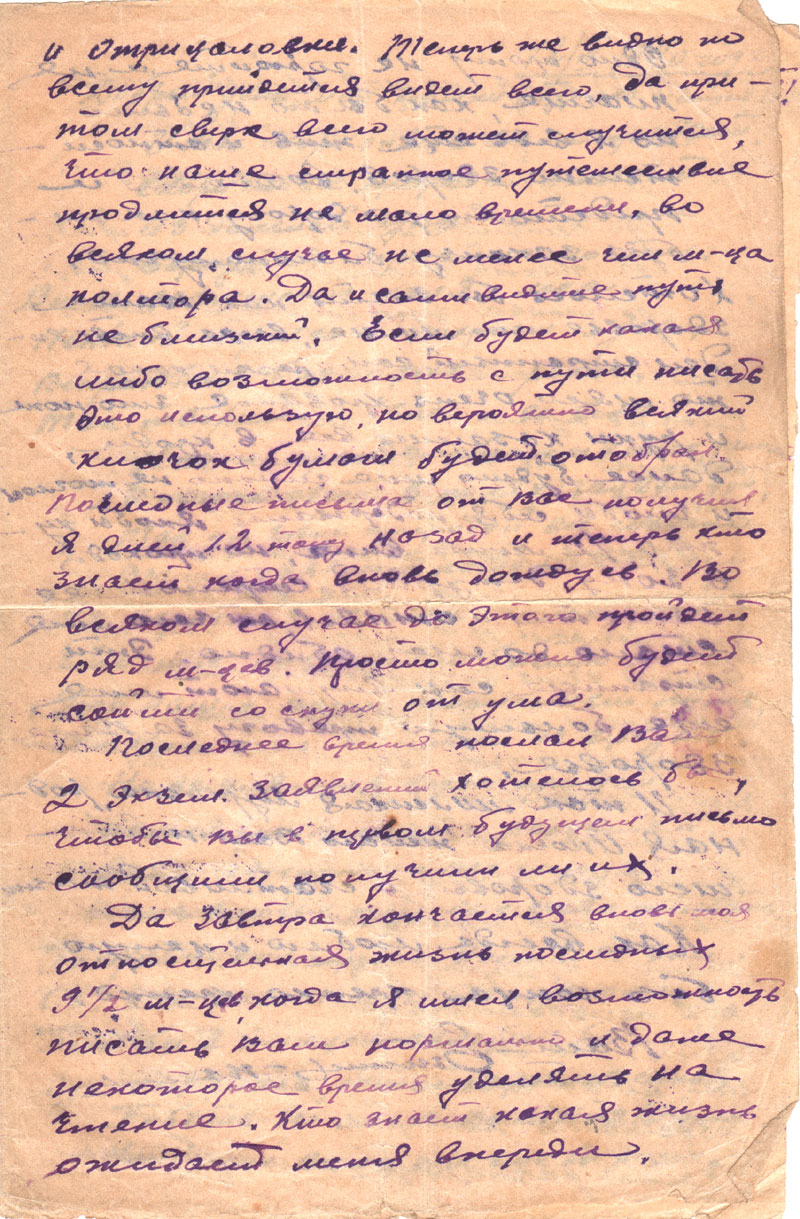 и отрицаловки. Теперь же видно по
всему прийдется видет всего, да при-
том сверх всего может случится,
что наше странное путешествие
продлится не мало времени, во
всяком случае не менее чем м-ца
полтора. Да и сами видите путь
не близкий. Если будет какая
либо возможность с пути писать
это использую, но вероятно всякий
клочок бумаги будет отобран
Последные письма от Вас получил
я дней 12 тому назад и теперь кто
знает когда вновь дождусь. Во
всяком случае до этого пройдет
ряд м-цев. Просто можно будет
сойти со скуки от ума.
Последнее время послал Вам
2 экзем. заявлений хотелось бы,
чтобы вы в первом будущем письмо
сообщили получили ли их.
Да завтра кончается вновь моя
относительная жизнь последных
9 1/2 м-цев, когда я имел возможность
писать Вам нормально и даже
некоторое время уделять на
чтение. Кто знает какая жизнь
ожидает меня впереди.